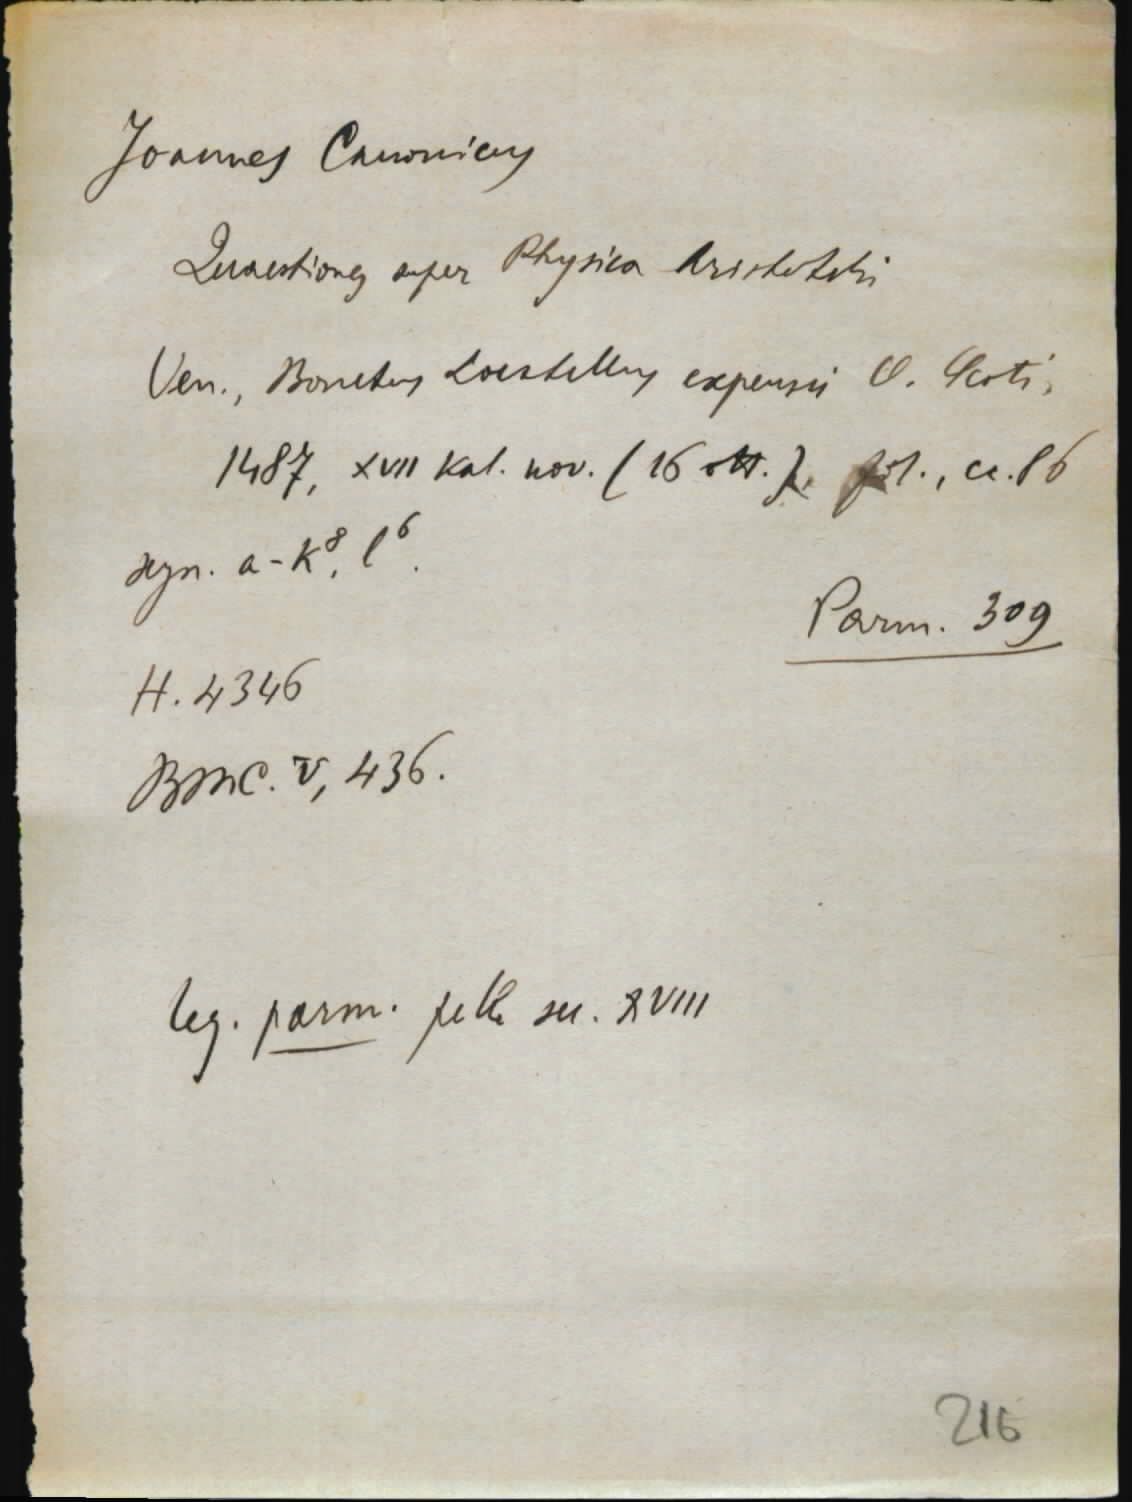 Joannes Canonicus
Quaestiones super Physica Aristotelis
Ven., Bonetus Locatellus expensis O. Scoti,
1487, XVII Kal. nov. (16 ott.), fol., cc. 86
segn. a-k⁸, l⁶.
Parm. 309
H. 4346
BMC. V, 436.
leg. parm. pelle sec. XVIII
216